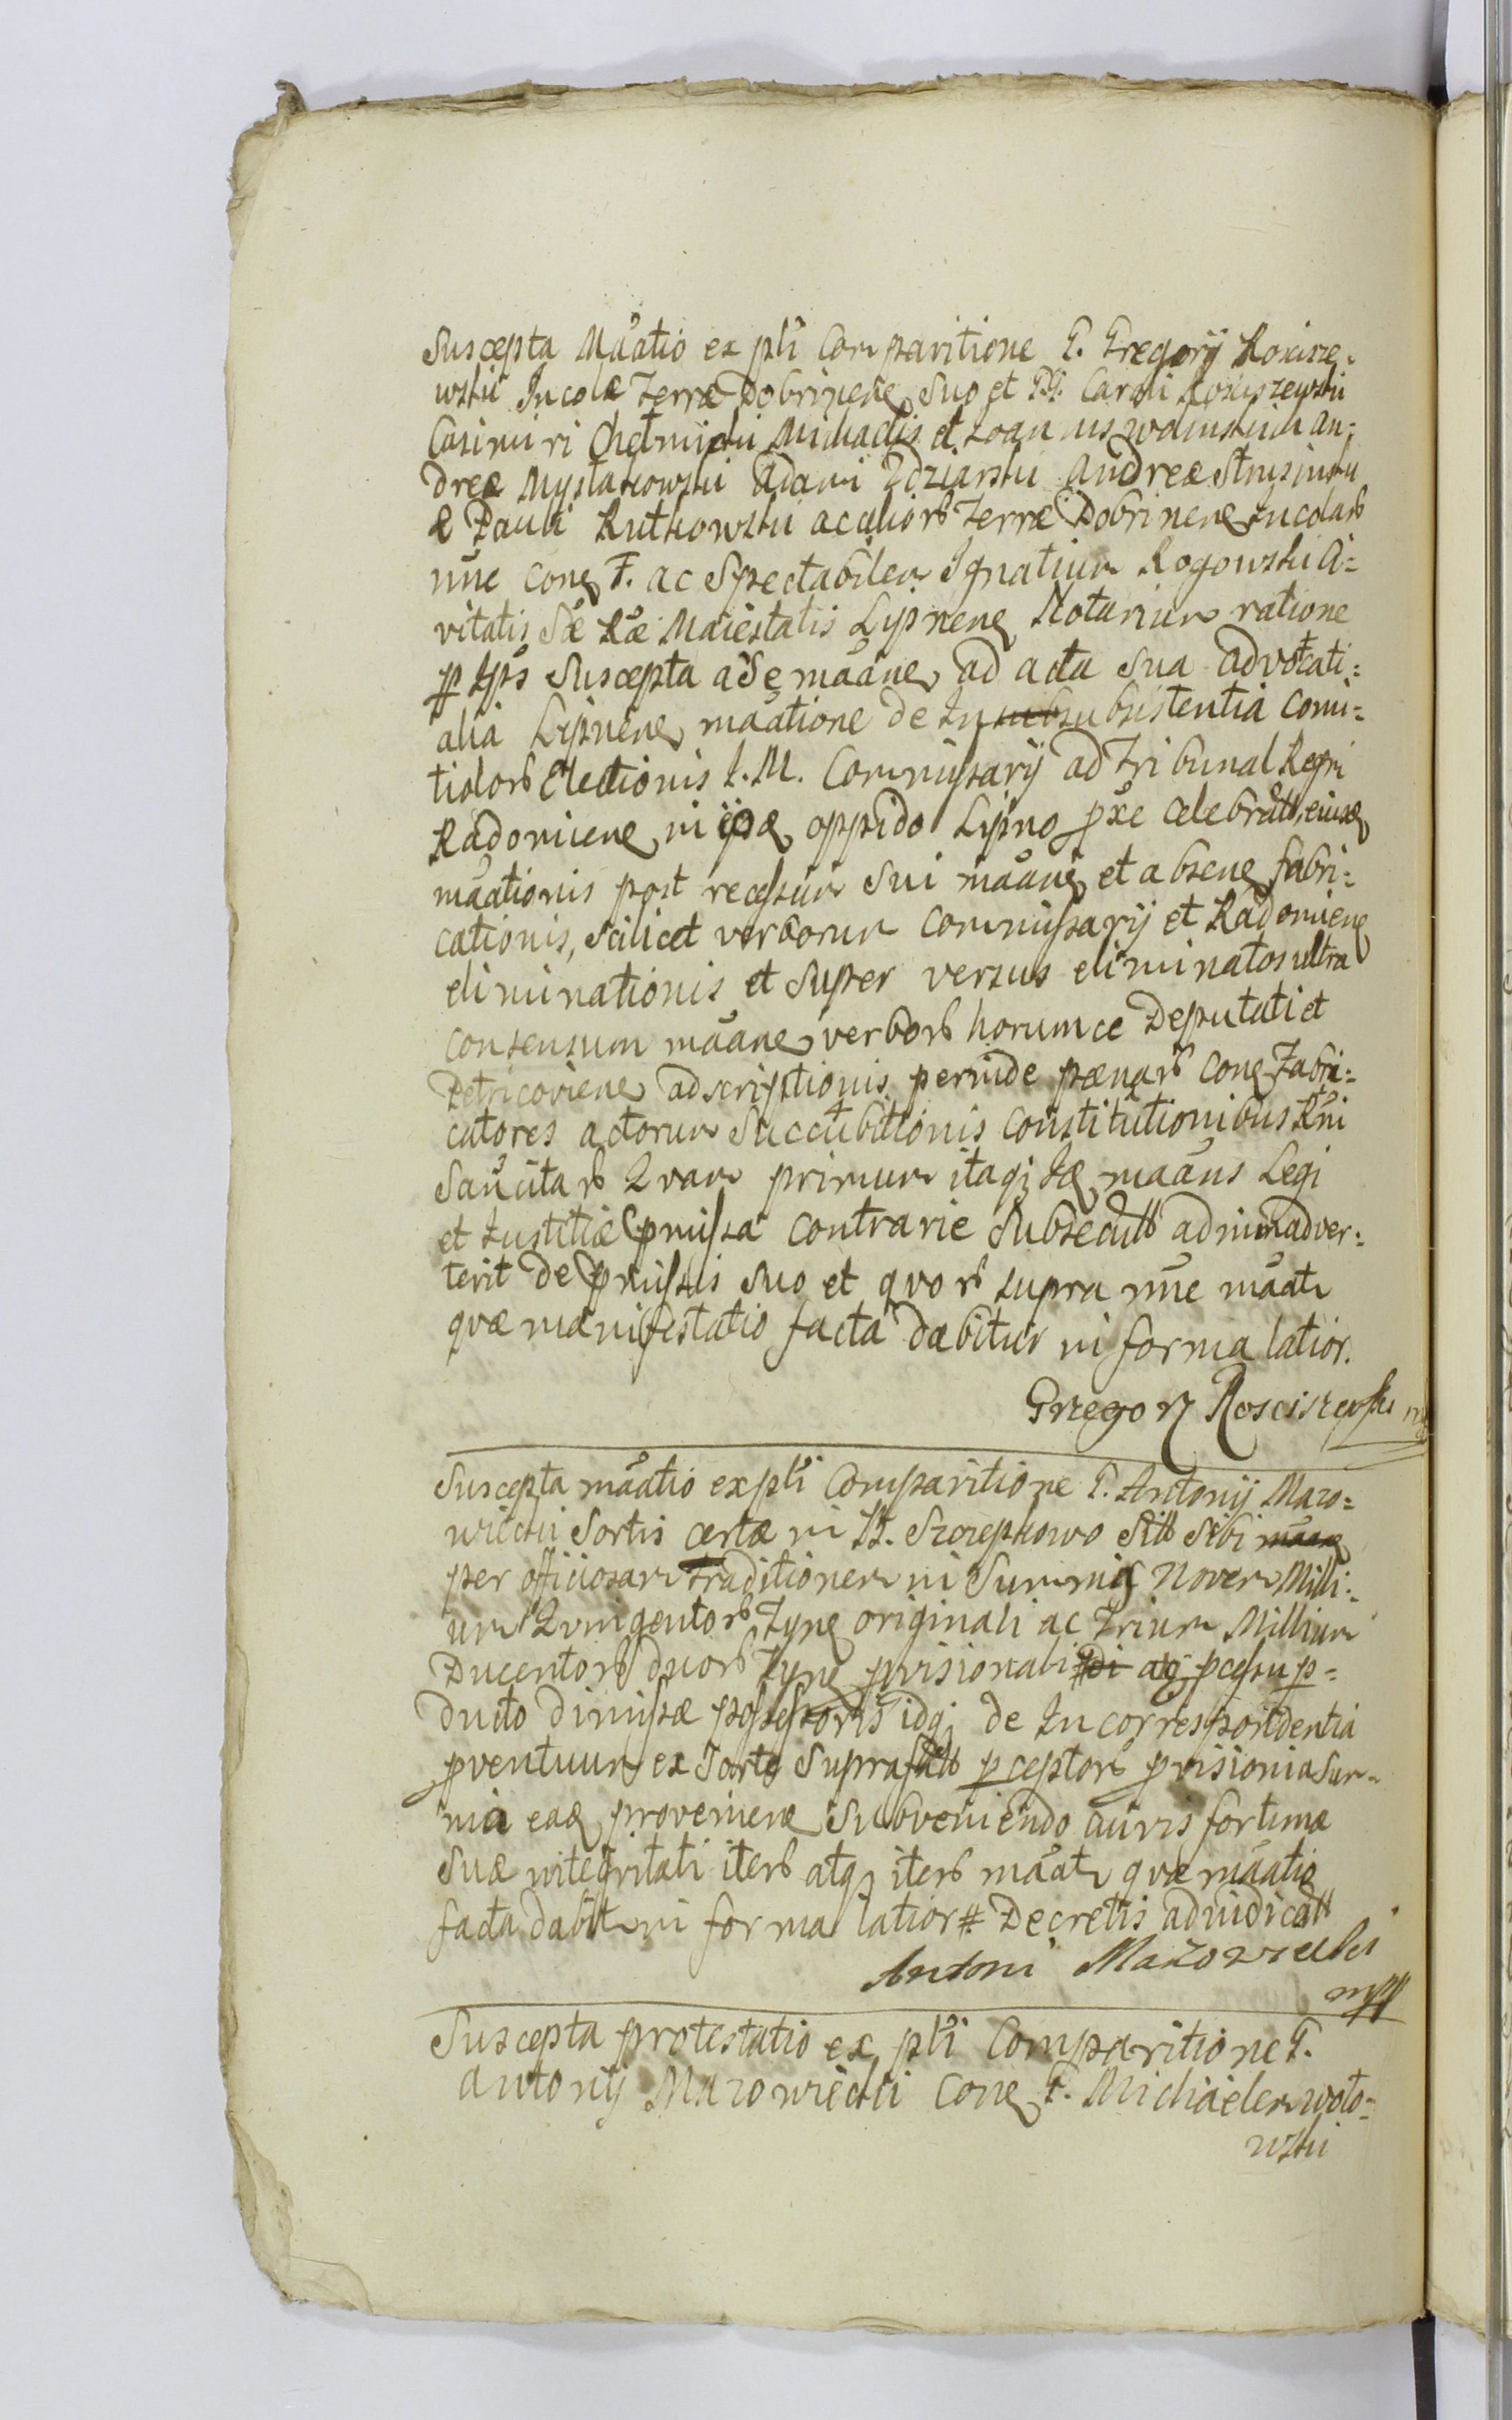 Suscepta Mãatio ex pñti Comparitione G. Gregorij Roscisze-
wski Incolæ Terræ Dobrinens Suo et GG. Caroli Rosciszewski
Casimiri Chełmicki Michaelis et Joannis Wolinskich An=
dreæ Mysłakowski Adami Zdziarski Andreæ Strusinski
& Pauli Rutkowski ac aliorb Terræ Dobrinens Incolarb
nne cone F. ac Spectabilem Ignatium Rogowski Ci=
vitatis Sæ Ræ Maiestatis Lipnens Notarium ratione
p Ips Suscepta a Se mãane, ad acta Sua advocati=
alia Lipnens mãatione de In subsubsistentia Comi=
tiolorb Electionis I. M. Commissarij ad Tribunal Regni
Radomiens in oppido Lipno pxe celebratt, eiusq
mãationis post recessum Sui mãanis et absens fabri=
cationis, Scilicet verborum Commissarij et Radomiens
eliminationis et Super versus eliminatos ultra
consensum mãane verborb horumce Deputati et
Petricoviens adscriptionis perinde pænarb cone Fabri=
catores actorum Succubitionis Constitutionibus Rñi
Sancitarb Quam primum itaq Idq mãans Legi
et Iustitiæ pmissa contrarie Subsecutt adnimadver=
terit de pmissis Suo et quorb supra nne mãatr
quæ manifestatio facta dabitur in forma latior.
Grzegorz Rosciszewski mp
Suscepta mãatio ex pñti Comparitione G. Antonij Mazo=
wiecki Sortis certæ in B. Szczepkowo Sitt Sibi mãane
per officiosam traditionem in Summis Novem Milli=
um Quingentorb Tyns originali ac Trium Millium
Ducentorb duorb Tyns pvisionali # di atq pcessu p=
ducto dimissæ possessoris idq de Incorrespondentia
pventuum ex Sorte Suprafatt pceptorb pvisioni a Sum-
ma eaq proveniens Subveniendo iuris fortunæ
Suæ integritati iterb atq iterb mãatr quæ mãatio
facta dabitr in forma latior # Decretis adiudicatt
Antoni Mazowiecki
mpp
Suscepta protestatio ex pñti Comparitione G.
Antonij Mazowiecki Cone G. Michaelem Woło=
wski